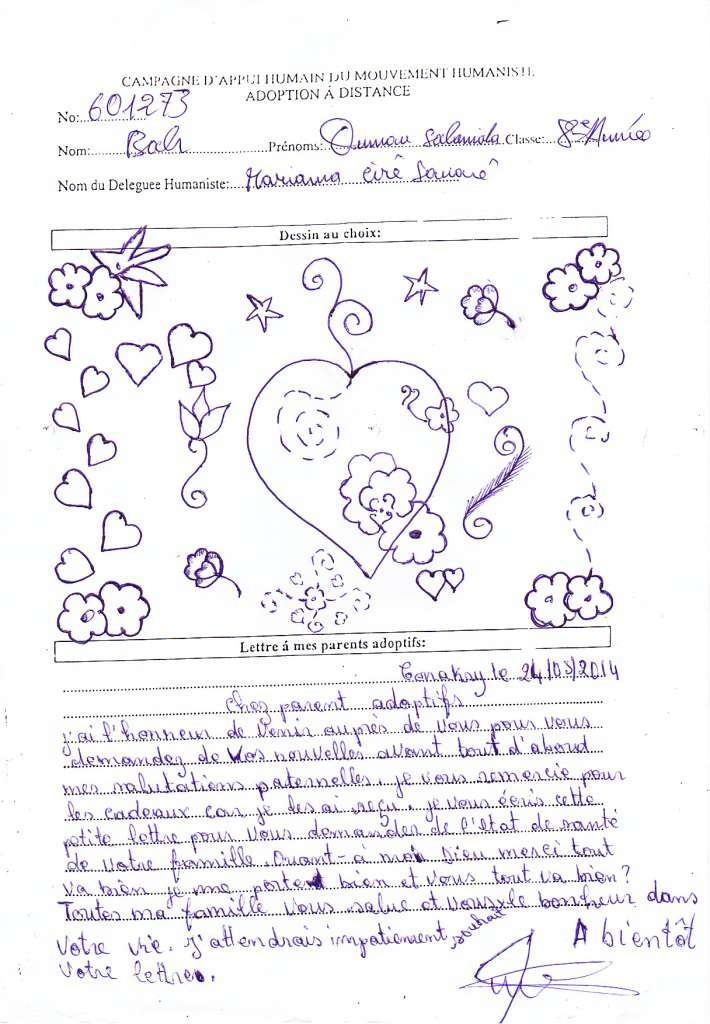 CAMPAGNE D'APPUI HUMAIN DU MOUVEMENT HUMANISTE
ADOPTION Á DISTANCE
No: 601273
Nom: Bah Prénoms: Oumou Salamata Classe: 8e Année
Nom du Deleguee Humaniste: Mariama Ciré
Dessin au choix:
Lettre á mes parents adoptifs:
Conakry le 24/03/2014
chez parent adoptifs
j'ai l'honneur de venir auprès de vous pour vous
demandez de vos nouvelles avant tout d'abord
mes salutations paternelles. je vous remercie pour
les cadeaux car je les ai reçu. je vous écris cette
petite lettre pour vous demander de l'état de santé
de votre famille. Quant-à moi Dieu merci tout
va bien je me porte bien et vous tout va bien?
Toutes ma famille vous salue et vous souhait le bonheur dans
votre vie. J'attendrais impatiement
votre lettre. A bientôt